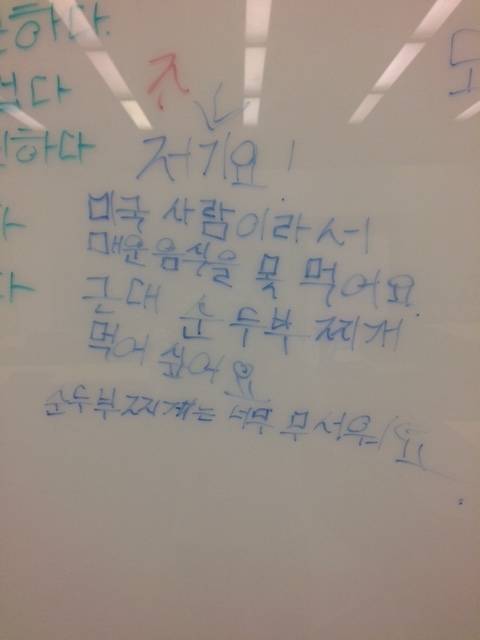 하다
다
하다
즈
저기요!
미국 사람이라서
매운음식을 못 먹어요
근대 순두부찌개
먹어 싶어요
순두부찌계는 너무 무서워요